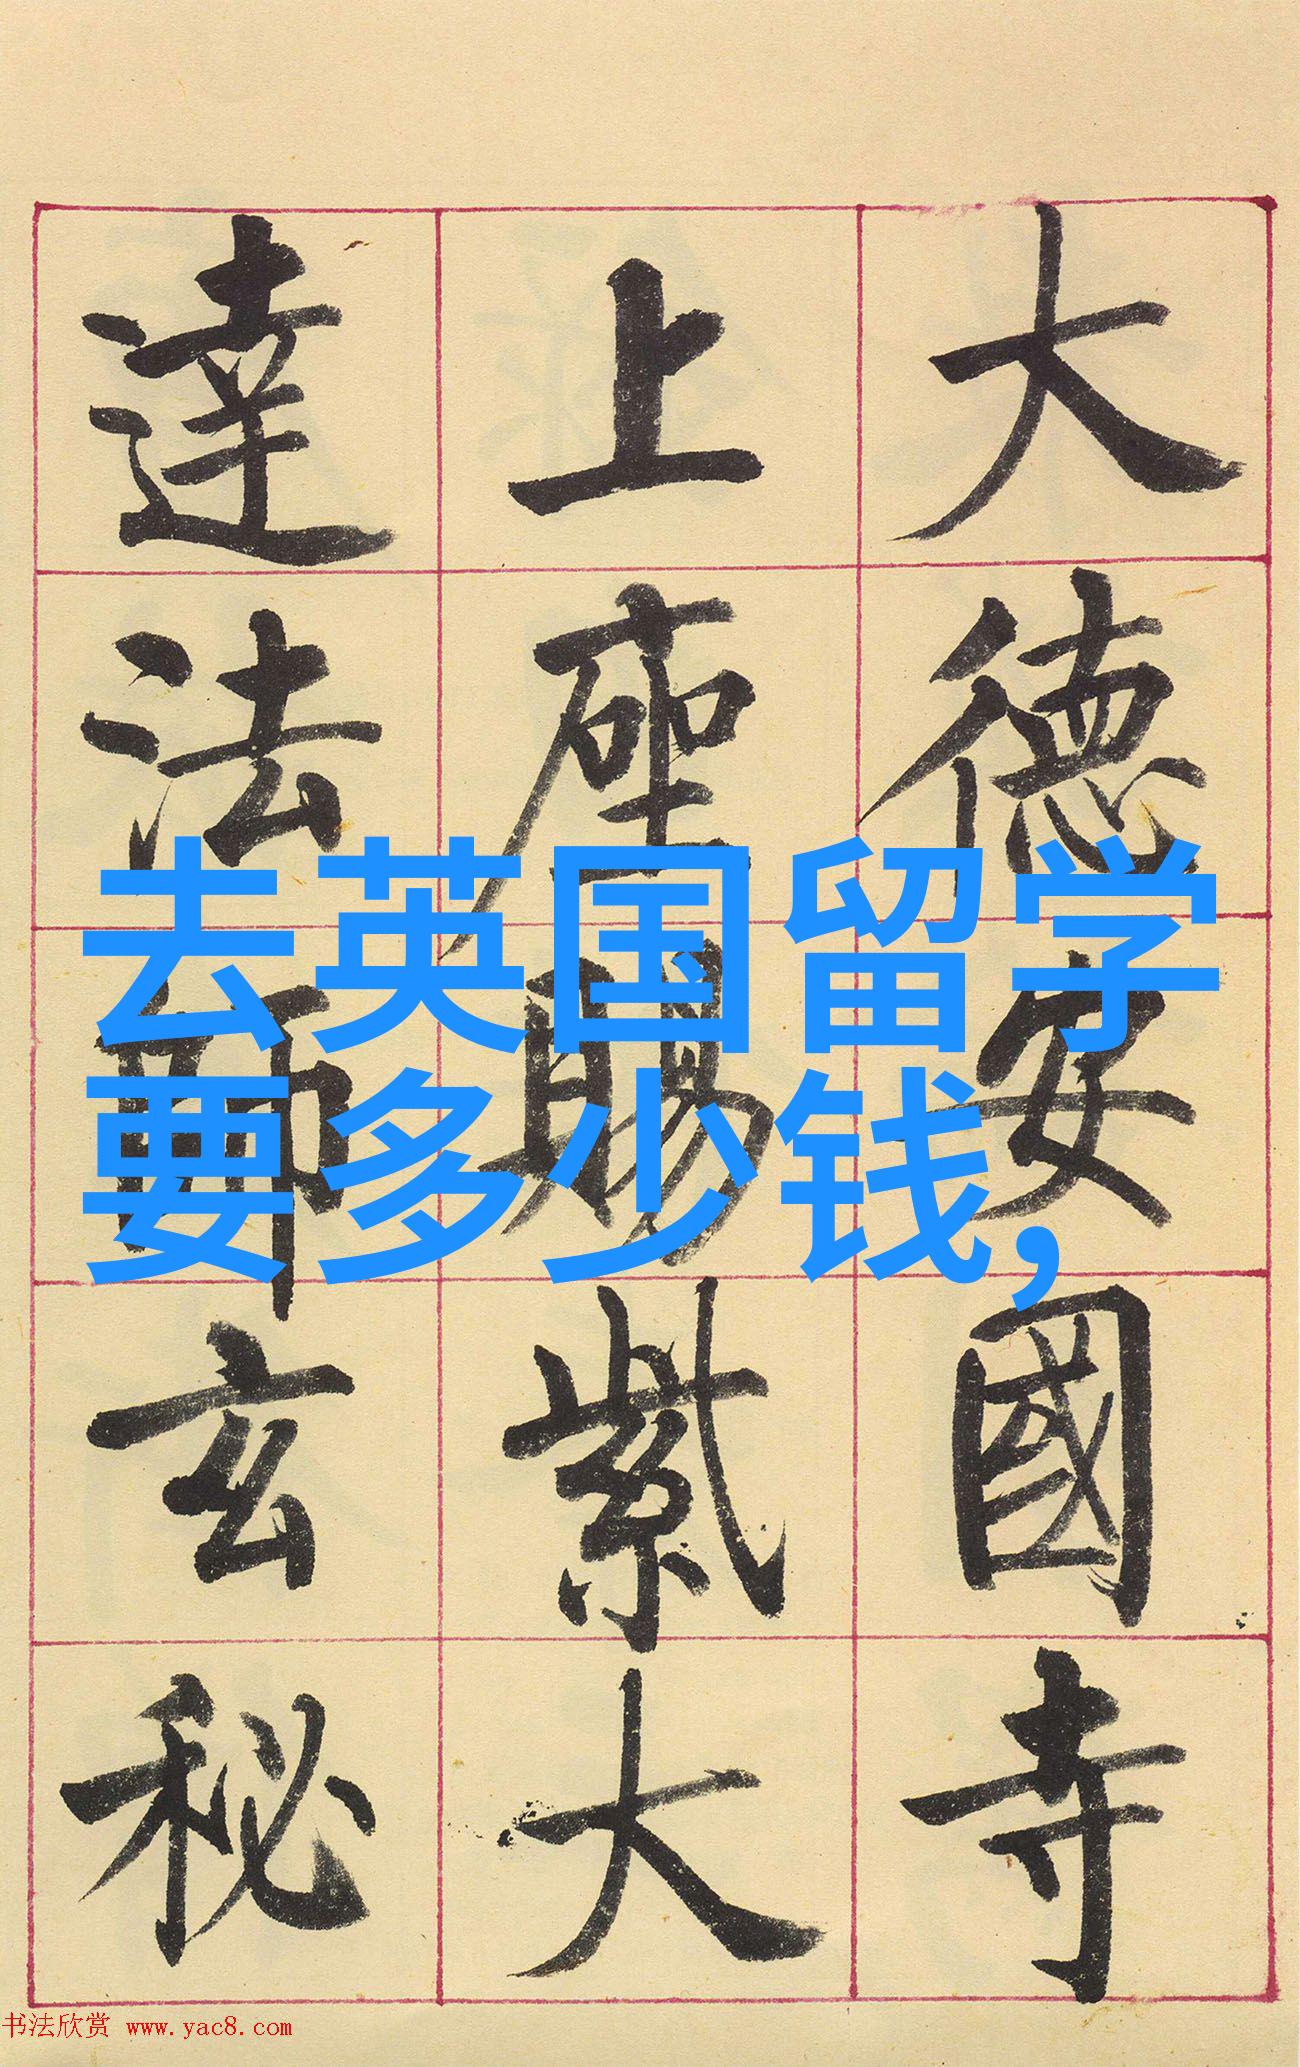 大德安國寺
上座賜紫大
達法師玄秘
去英国留学
要多少钱,
书法欣赏 www.yac8.com